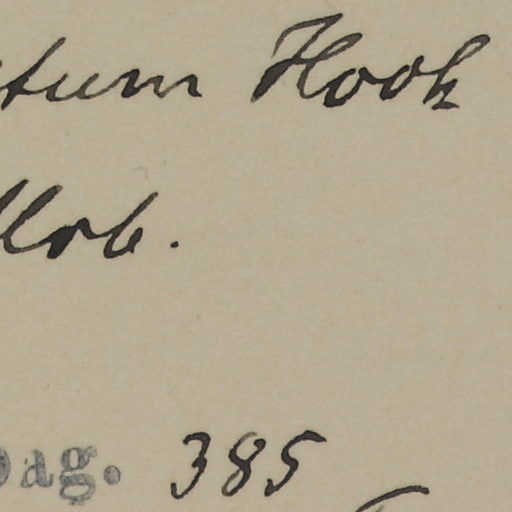 tum Hook
llob.
Dag. 385